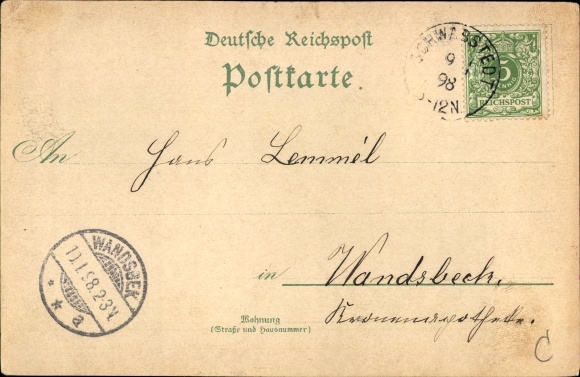 Deutsche Reichspost
Postkarte.
SCHWABSTEDT
9
98
-12N
5
REICHSPOST
An Hans Lemmél
WANDSBEK
10.1.98.2-3N.
* * a
in Wandsbeck,
Wohnung
(Straße und Hausnummer)
Kronenapotheke.
C